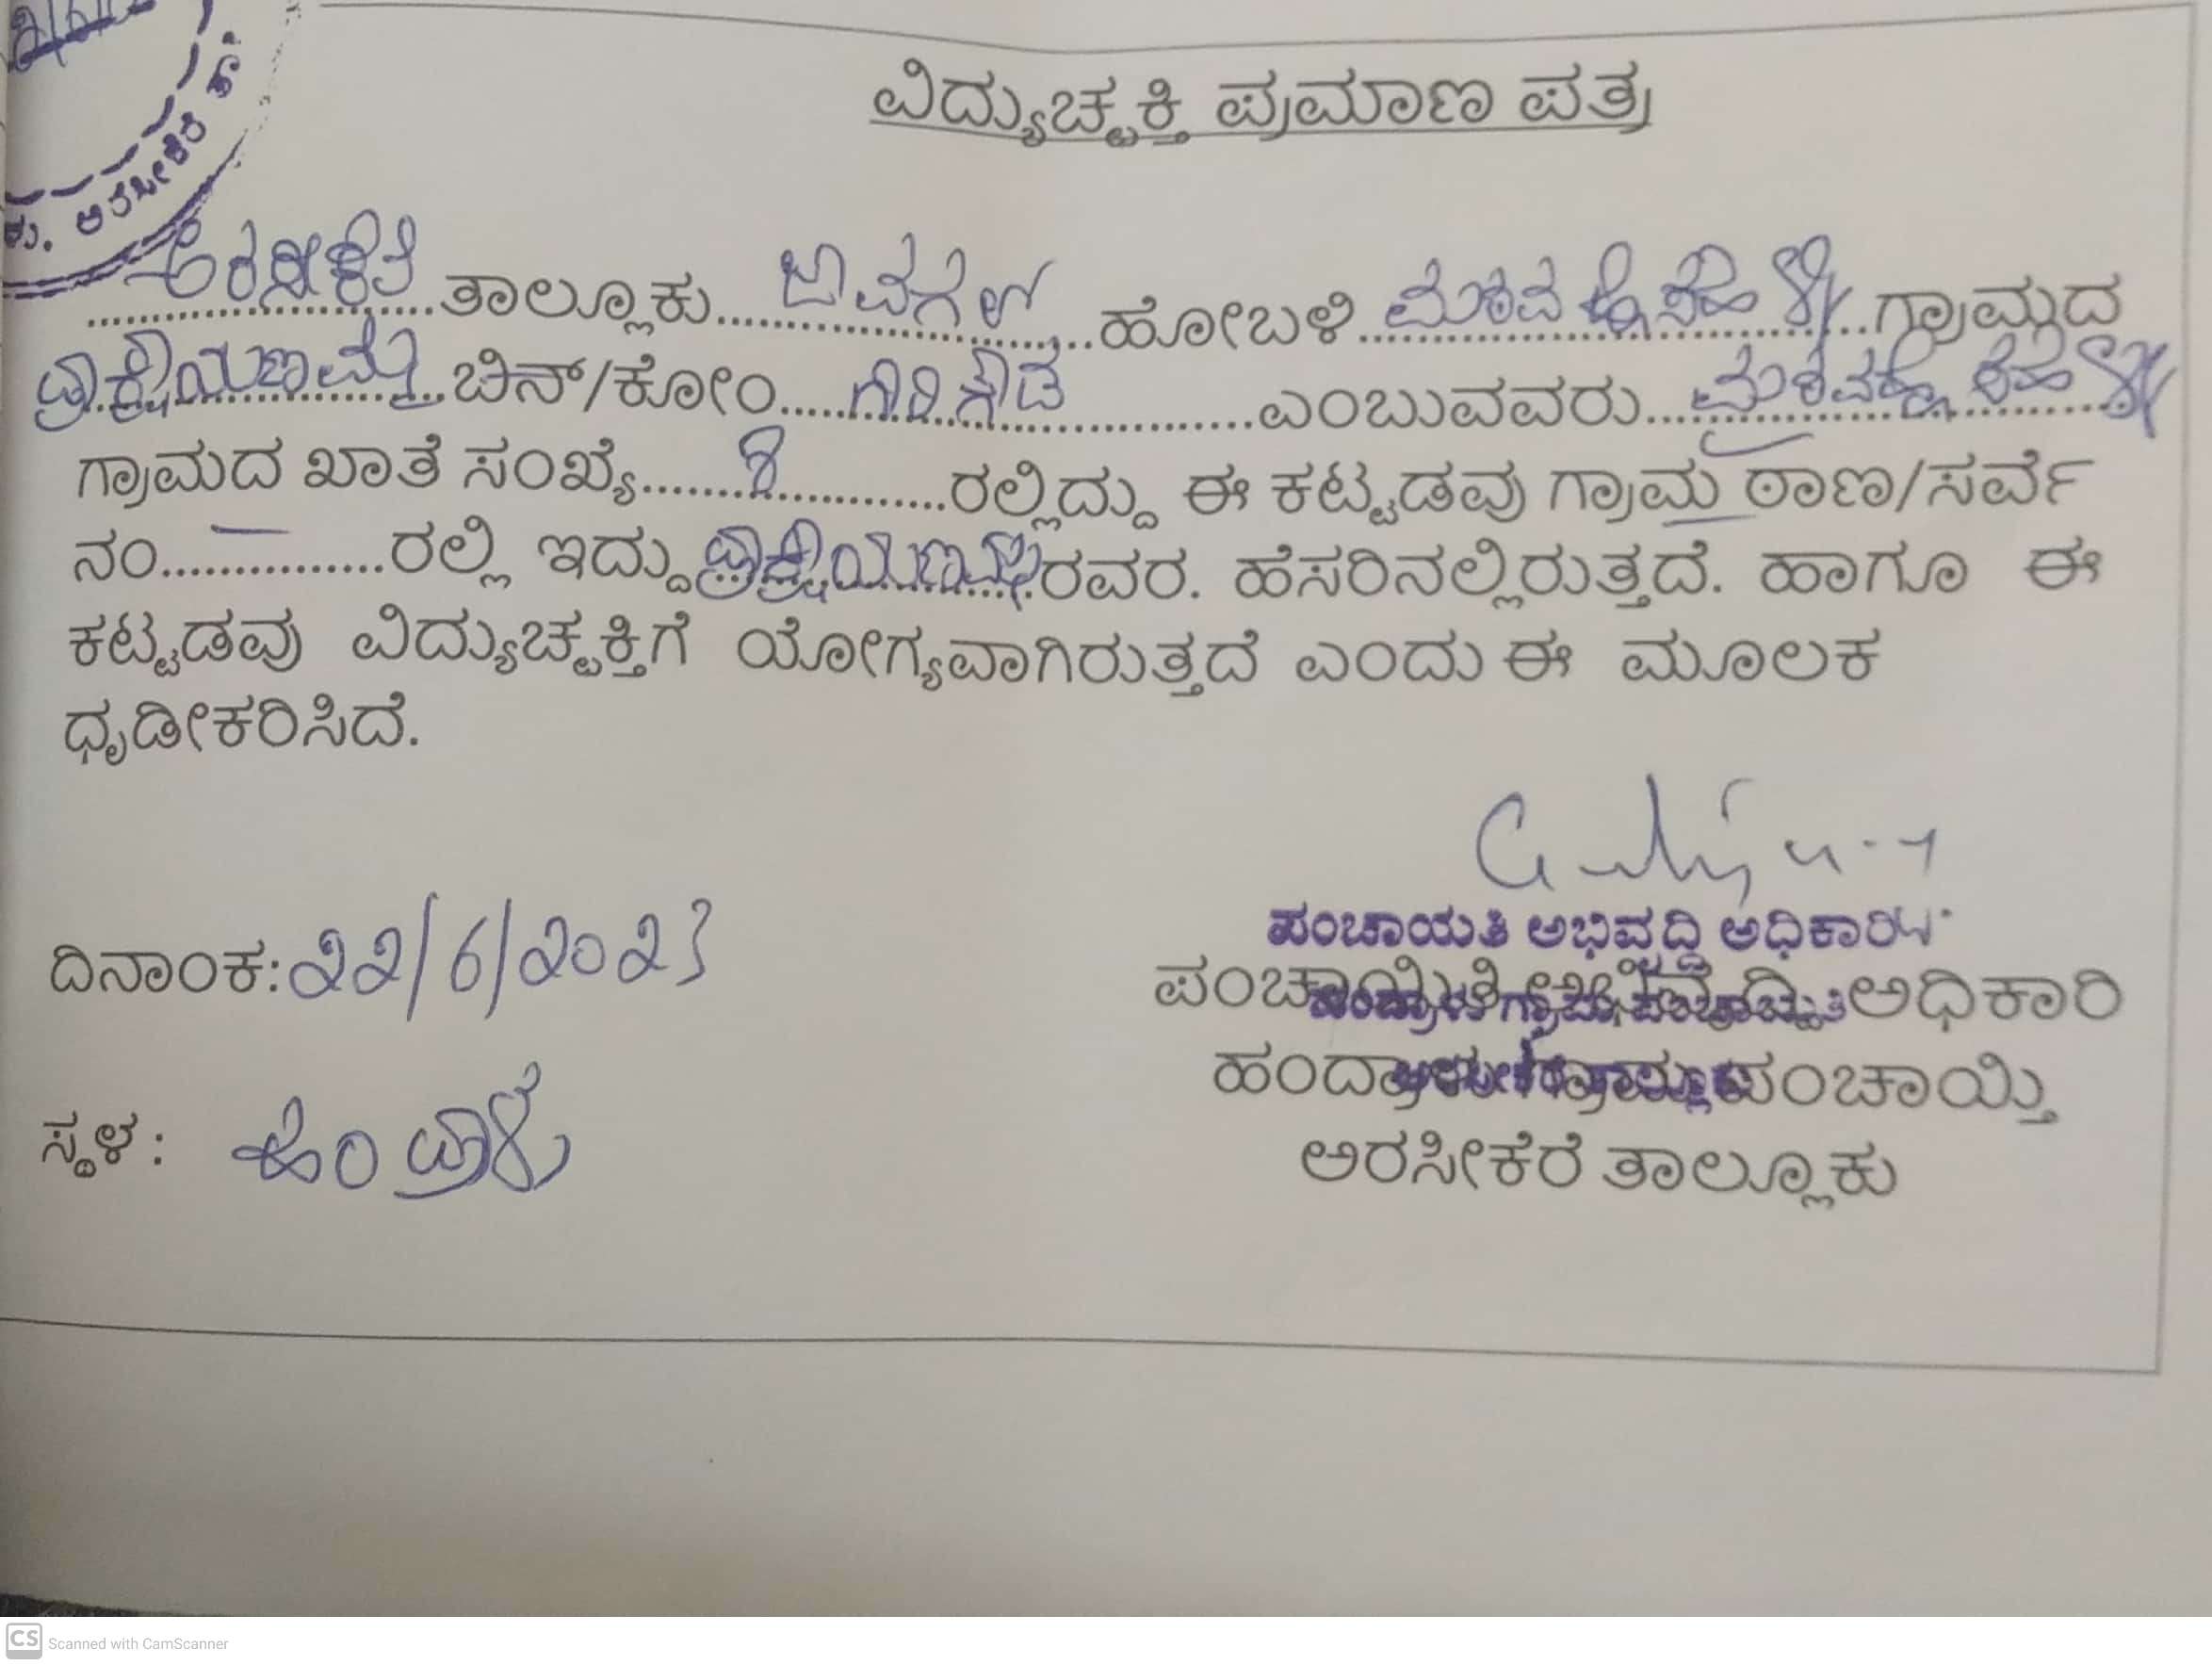 ವಿದ್ಯುಚ್ಛಕ್ತಿ ಪ್ರಮಾಣ ಪತ್ರ
ಅರಸೀಕೆರೆ ತಾಲ್ಲೂಕು ಜಾವಗಲ್ ಹೋಬಳಿ ಗ್ರಾಮದ
ದ್ರಾಕ್ಷಾಯಣಮ್ಮ ಬಿನ್/ಕೋಂ ಗಿರಿಗೌಡ ಎಂಬುವವರು
ಗ್ರಾಮದ ಖಾತೆ ಸಂಖ್ಯೆ 8 ರಲ್ಲಿದ್ದು ಈ ಕಟ್ಟಡವು ಗ್ರಾಮ ಠಾಣ/ಸರ್ವೆ
ನಂ. — ರಲ್ಲಿ ಇದ್ದು ದ್ರಾಕ್ಷಾಯಣಮ್ಮ ರವರ. ಹೆಸರಿನಲ್ಲಿರುತ್ತದೆ. ಹಾಗೂ ಈ
ಕಟ್ಟಡವು ವಿದ್ಯುಚ್ಛಕ್ತಿಗೆ ಯೋಗ್ಯವಾಗಿರುತ್ತದೆ ಎಂದು ಈ ಮೂಲಕ
ಧೃಡೀಕರಿಸಿದೆ.
ದಿನಾಂಕ: 22/6/2023
ಪಂಚಾಯತಿ ಅಭಿವೃದ್ಧಿ ಅಧಿಕಾರಿ
ಪಂಚಾಯಿತಿ ಅಭಿವೃದ್ಧಿ ಅಧಿಕಾರಿ
ಹಂದ್ರಾಳು ಗ್ರಾಮ ಪಂಚಾಯ್ತಿ
ಅರಸೀಕೆರೆ ತಾಲ್ಲೂಕು
ಸ್ಥಳ: ಹಂದ್ರಾಳು
CS Scanned with CamScanner